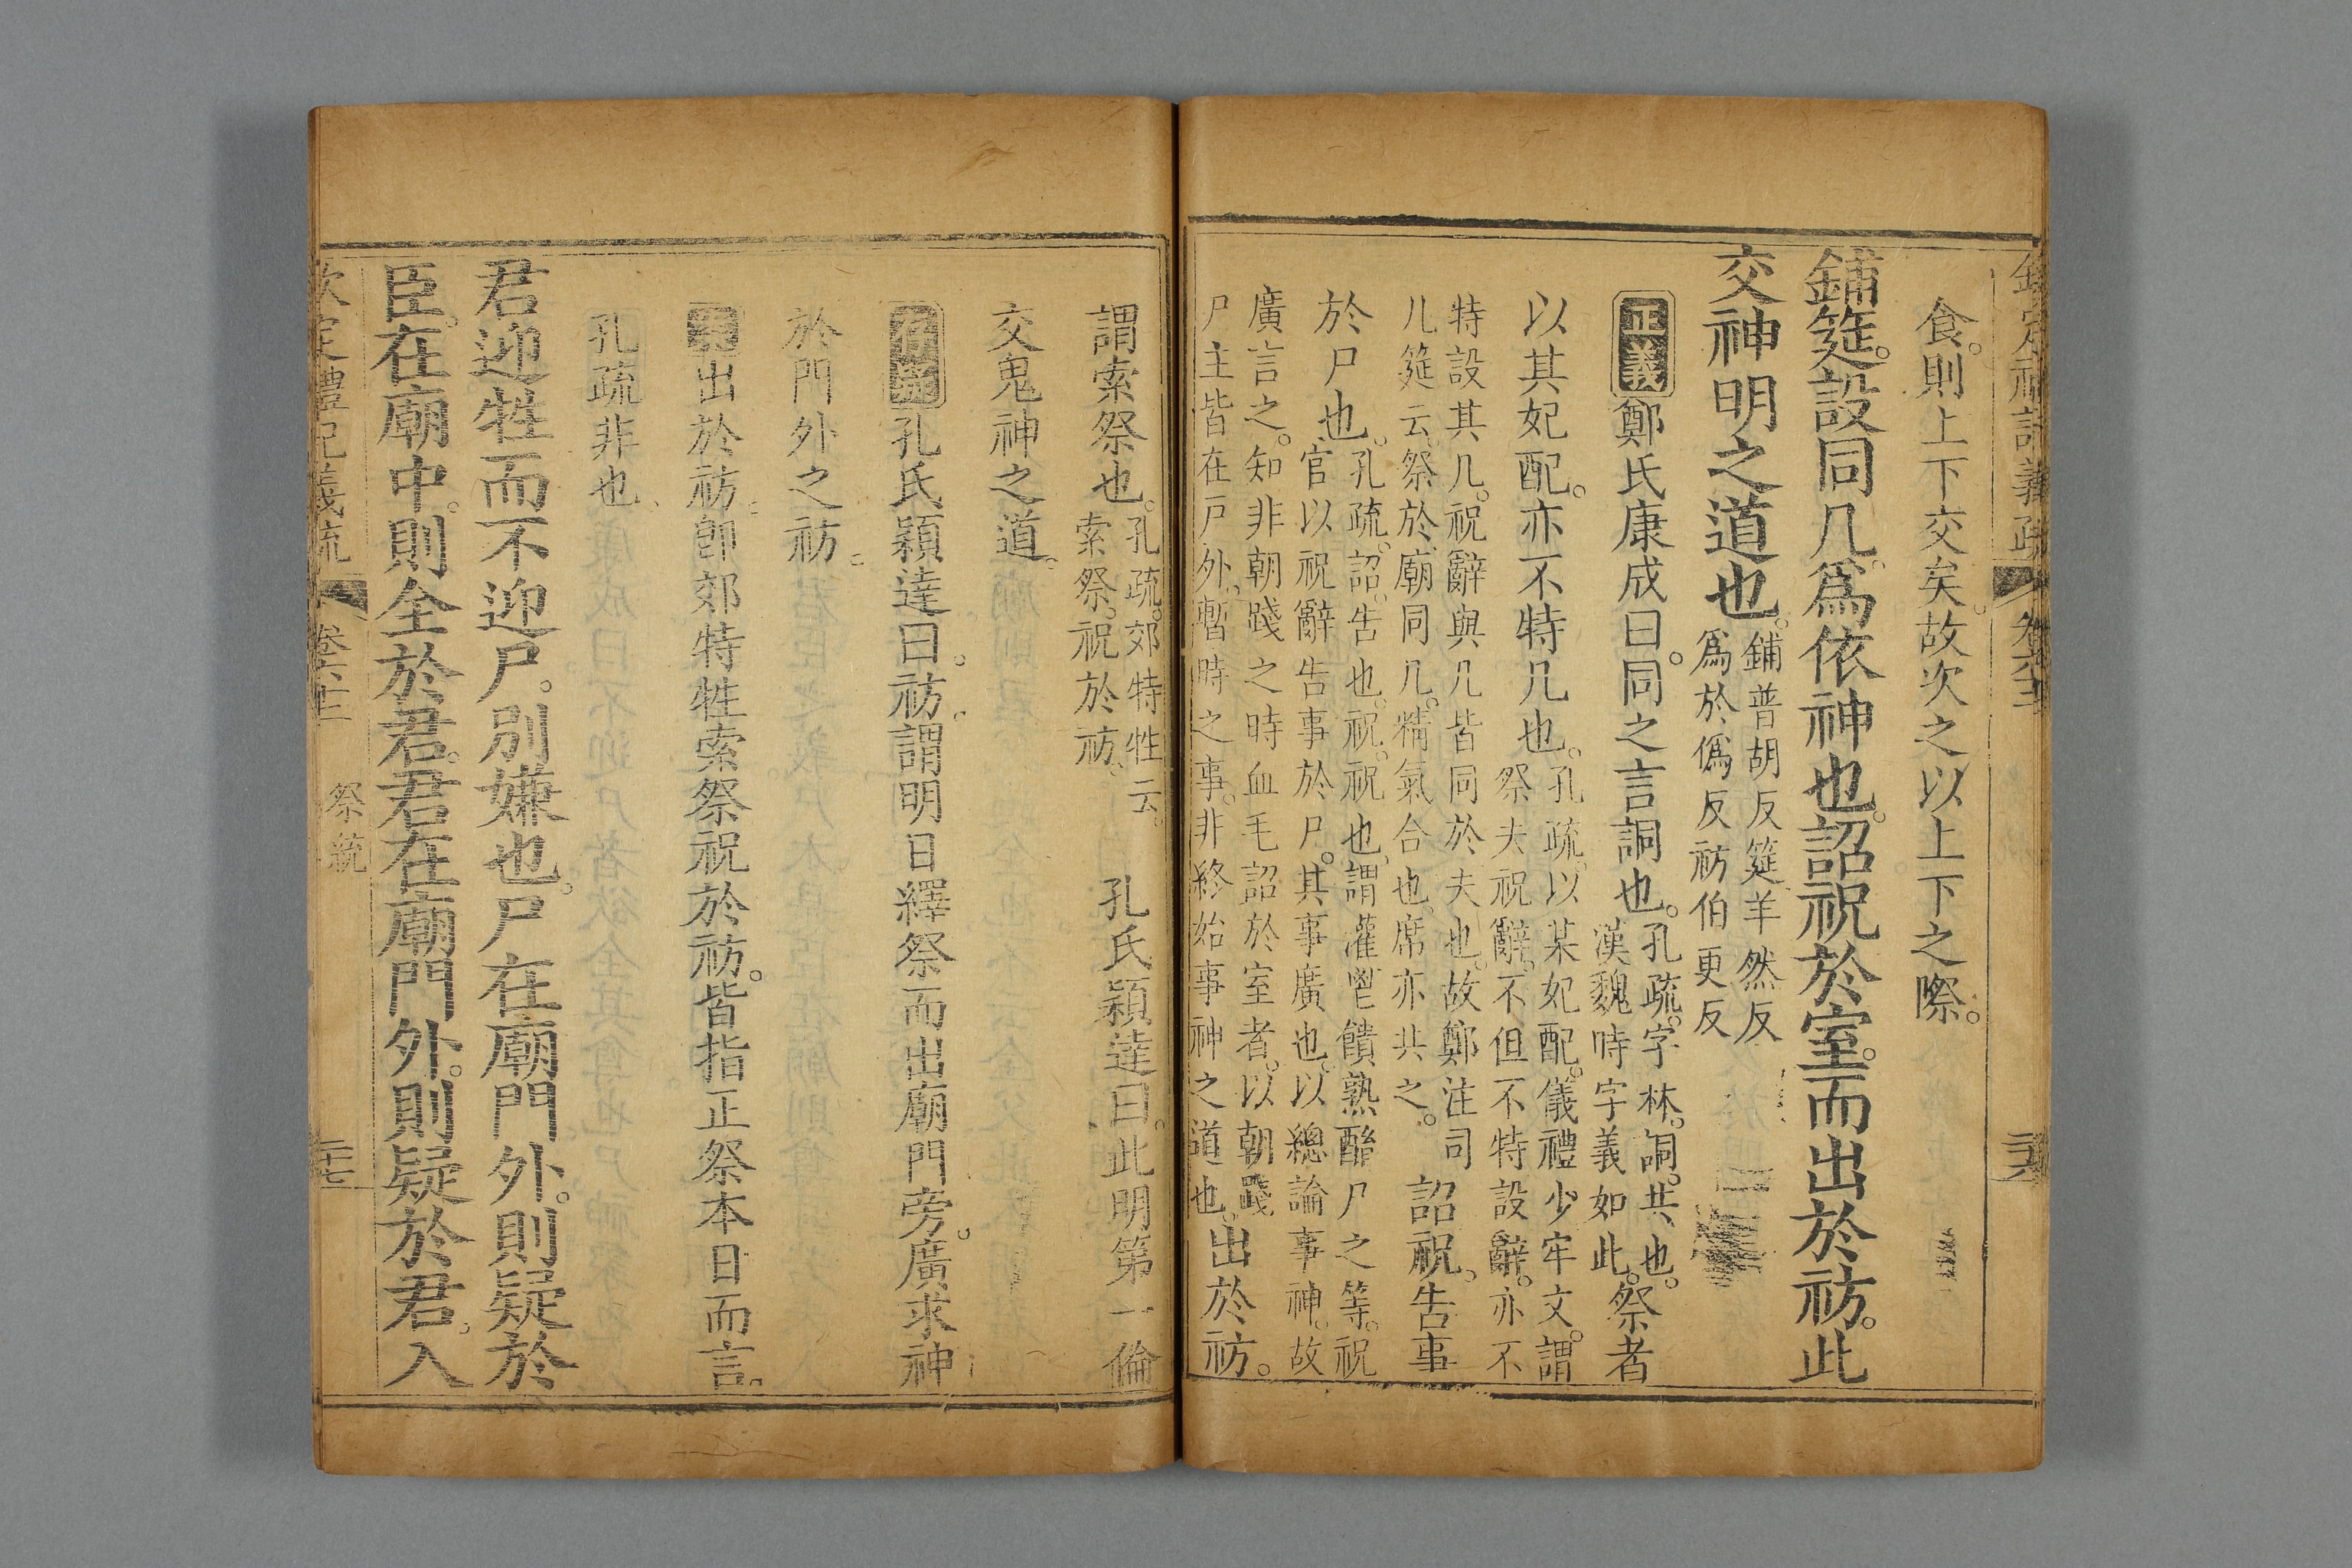 欽定禮記義疏 卷六十二 二十六
食。則上下交矣。故次之以上下之際。
鋪筵。設同几。爲依神也。詔祝於室。而出於祊。此
交神明之道也。鋪普胡反筵羊然反
爲於僞反祊伯更反
正義鄭氏康成曰。同之言詷也。孔疏。字林。詷。共也。
漢魏時字義如此。祭者
以其妃配。亦不特几也。孔疏。以某妃配。儀禮少牢文。謂
祭夫祝辭。不但不特設辭。亦不
特設其几。祝辭與几皆同於夫也。故鄭注司
几筵云。祭於廟同几。精氣合也。席亦共之。詔祝。告事
於尸也。孔疏。詔。告也。祝。祝也。謂灌鬯饋熟酳尸之等。祝
官以祝辭告事於尸。其事廣也。以總論事神。故
廣言之。知非朝踐之時血毛詔於室者。以朝踐
尸主皆在戶外。暫時之事。非終始事神之道也。出於祊。
謂索祭也。孔疏。郊特牲云。
索祭。祝於祊。孔氏穎達曰。此明第一倫
交鬼神之道。
存疑孔氏穎達曰。祊。謂明日繹祭而出廟門旁。廣求神
於門外之祊。
案出於祊。卽郊特牲索祭祝於祊。皆指正祭本日而言。
孔疏非也。
君迎牲而不迎尸。別嫌也。尸在廟門外。則疑於
臣。在廟中。則全於君。君在廟門外。則疑於君。入
欽定禮記義疏 卷六十二 祭統 二十七